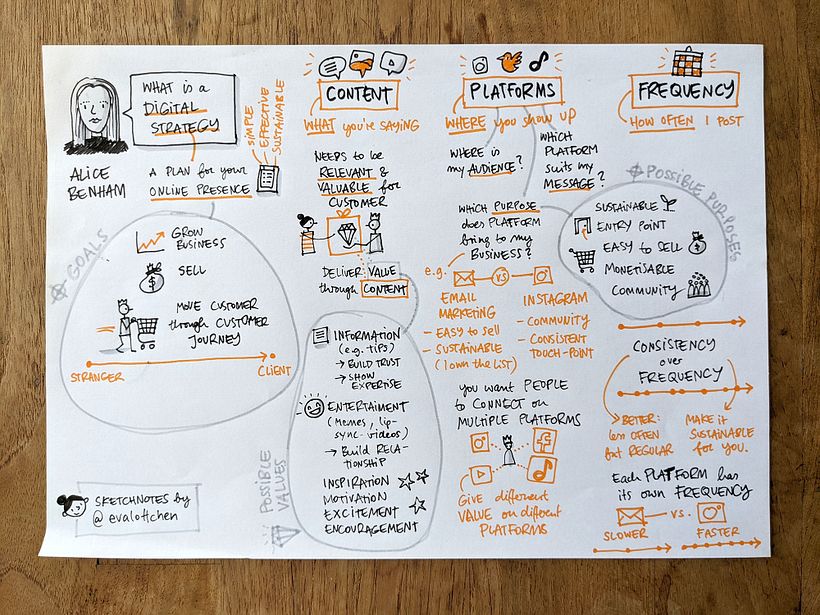 WHAT is a
DIGITAL
STRATEGY
ALICE
BENHAM
A PLAN for your
ONLINE PRESENCE
SIMPLE
EFFECTIVE
SUSTAINABLE
GOALS
GROW
BUSINESS
SELL
MOVE CUSTOMER
through CUSTOMER
JOURNEY
STRANGER
CLIENT
SKETCHNOTES by
@evalottchen
CONTENT
WHAT you're SAYING
NEEDS to be
RELEVANT &
VALUABLE for
CUSTOMER
DELIVER VALUE
through CONTENT
INFORMATION
(e.g. tips)
→ BUILD TRUST
→ SHOW
EXPERTISE
ENTERTAIMENT
(Memes, lip-
sync-videos)
→ Build RELA-
TIONSHIP
INSPIRATION
MOTIVATION
EXCITEMENT
ENCOURAGEMENT
POSSIBLE
VALUES
PLATFORMS
WHERE you SHOW UP
WHERE is
my AUDIENCE?
WHICH
PLATFORM
suits my
MESSAGE?
WHICH PURPOSE
does PLATFORM
bring to my
BUSINESS?
e.g.
VS
EMAIL
MARKETING
- EASY to sell
- SUSTAINABLE
(I own the LIST)
INSTAGRAM
- COMMUNITY
- CONSISTENT
TOUCH-POINT
you WANT PEOPLE
to CONNECT on
MULTIPLE PLATFORMS
GIVE different
VALUE on different
PLATFORMS
FREQUENCY
HOW OFTEN I POST
POSSIBLE PURPOSES
SUSTAINABLE
ENTRY POINT
EASY to SELL
MONETISABLE
COMMUNITY
CONSISTENCY
over
FREQUENCY
> BETTER:
less OFTEN
but REGULAR
MAKE it
SUSTAINABLE
for YOU.
Each PLATFORM has
its own FREQUENCY
VS.
SLOWER
FASTER